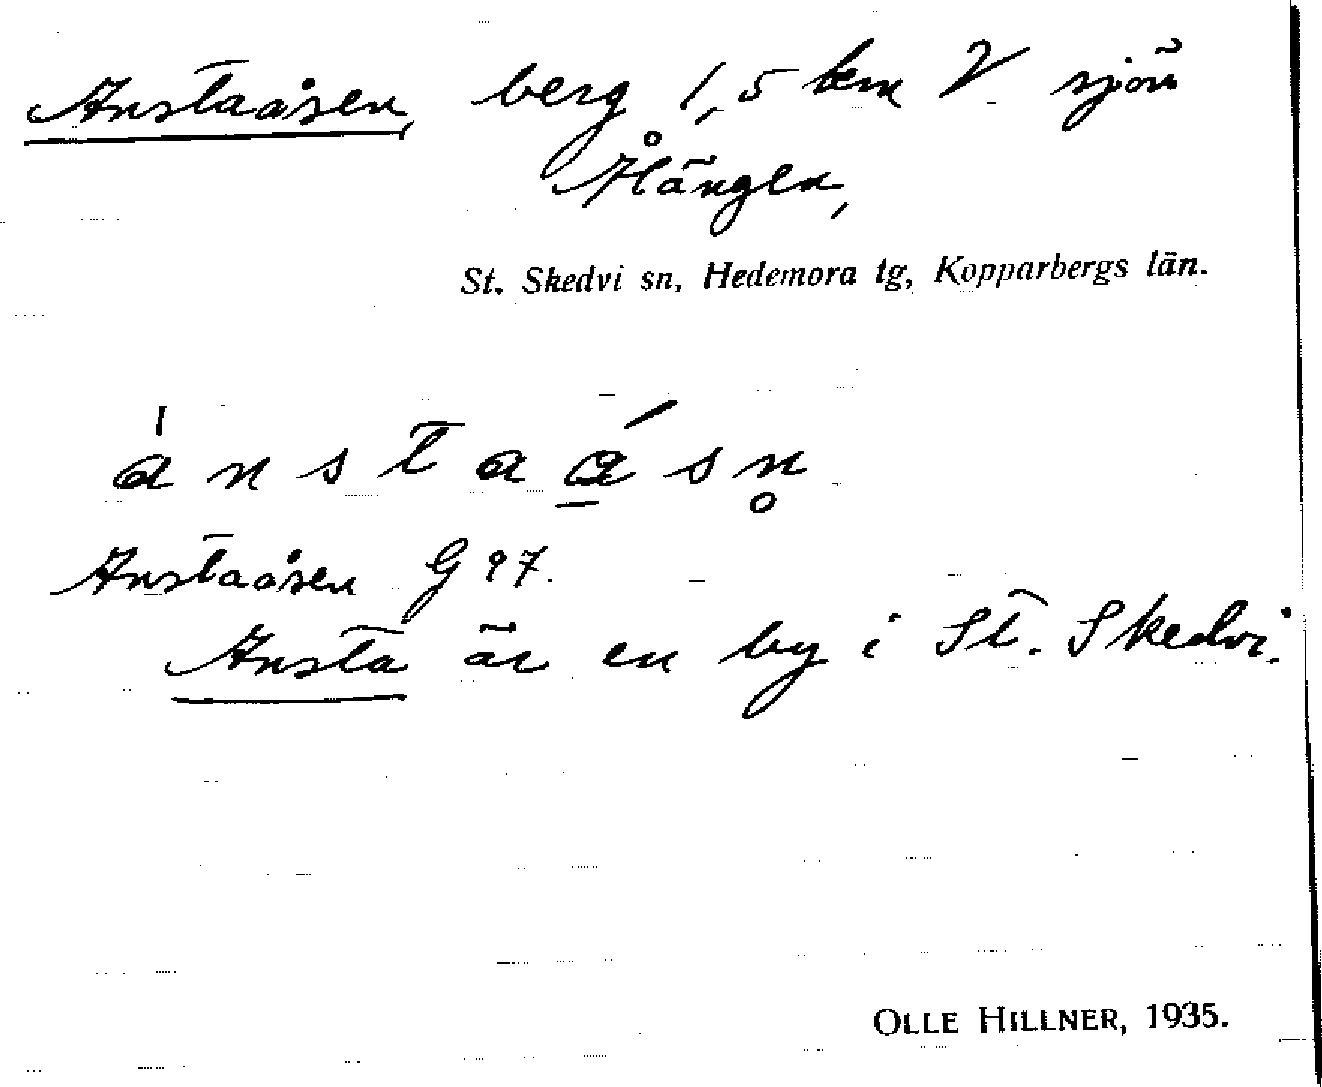 Anstaåsen, berg 1,5 km V sjön
Ålängen,
St. Skedvi sn, Hedemora tg, Kopparbergs län.
ànstaá̲sn̥
Anstaåsen G 97.
Ansta är en by i St. Skedvi.
OLLE HILLNER, 1935.